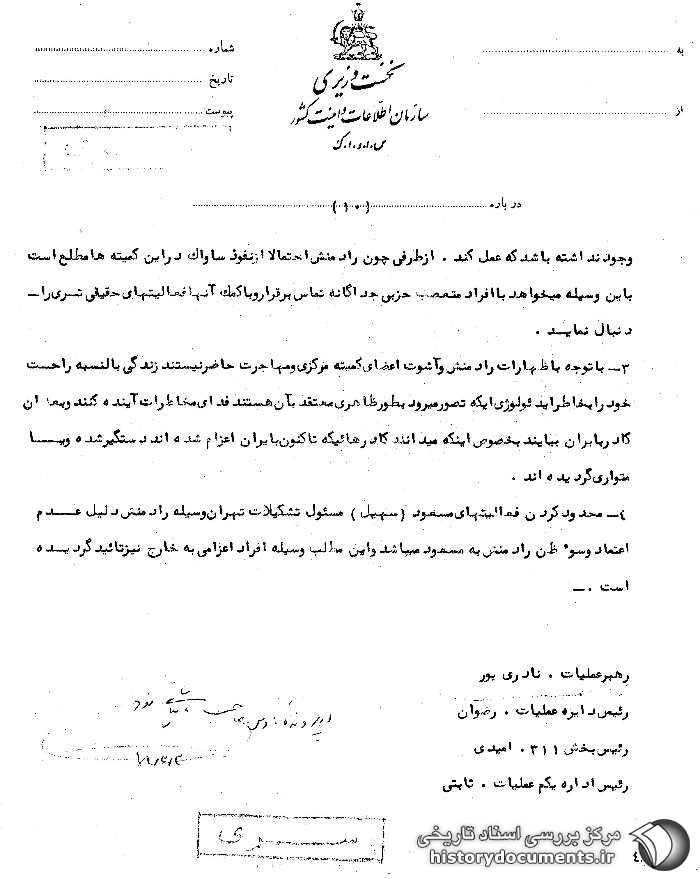 به
شماره
تاریخ
از
پیوست
نخست وزیری
سازمان اطلاعات و امنیت کشور
س.ا.و.ا.ک
درباره (۱۰)
وجود نداشته باشد که عمل کند . ازطرفی چون رادمنش احتمالا ازنفوذ ساواك دراین کمیته ها مطلع است
باین وسیله میخواهد با افراد متعصب حزبی جداگانه تماس برقرار وباکمك آنها فعالیتهای حقیقی تری را ــ
دنبال نماید .
۳ــ باتوجه باظهارات رادمنش وآشوت اعضای کمیته مرکزی ومهاجرت حاضرنیستند زندگی بالنسبه راحت
خود را بخاطر ایدئولوژی ایکه تصورمیرود بطورظاهری معتقد بآن هستند فدای مخاطرات آینده کنند وبعنوان
کادر بایران بیایند بخصوص اینکه میدانند کادرهائیکه تاکنون بایران اعزام شده اند دستگیرشده ویــا
متواری گردیده اند .
٤ــ محدودکردن فعالیتهای مسعود (سهیل) مسئول تشکیلات تهران وسیله رادمنش دلیل عــدم
اعتماد وسوء ظن رادمنش به مسعود میباشد واین مطلب وسیله افراد اعزامی به خارج نیزتائید گردیــده
است . ــ
رهبرعملیات . نادری پور
رئیس دایره عملیات . رضوان
رئیس بخش ۳۱۱ . امیدی
رئیس اداره یکم عملیات . ثابتی
ســــری
مرکز بررسی اسناد تاریخی
historydocuments.ir